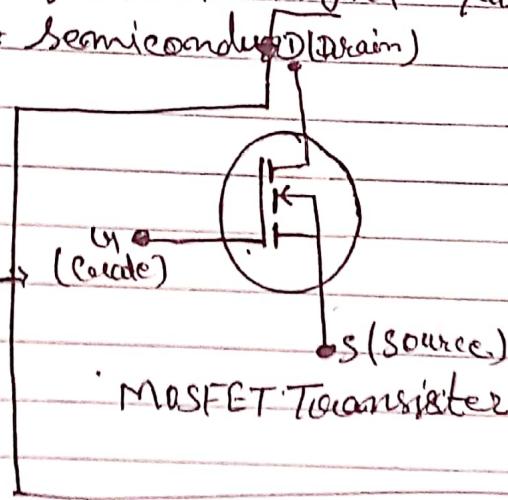 semicondu D(Drain)
G
(Gate)
S(Source)
MOSFET Transister